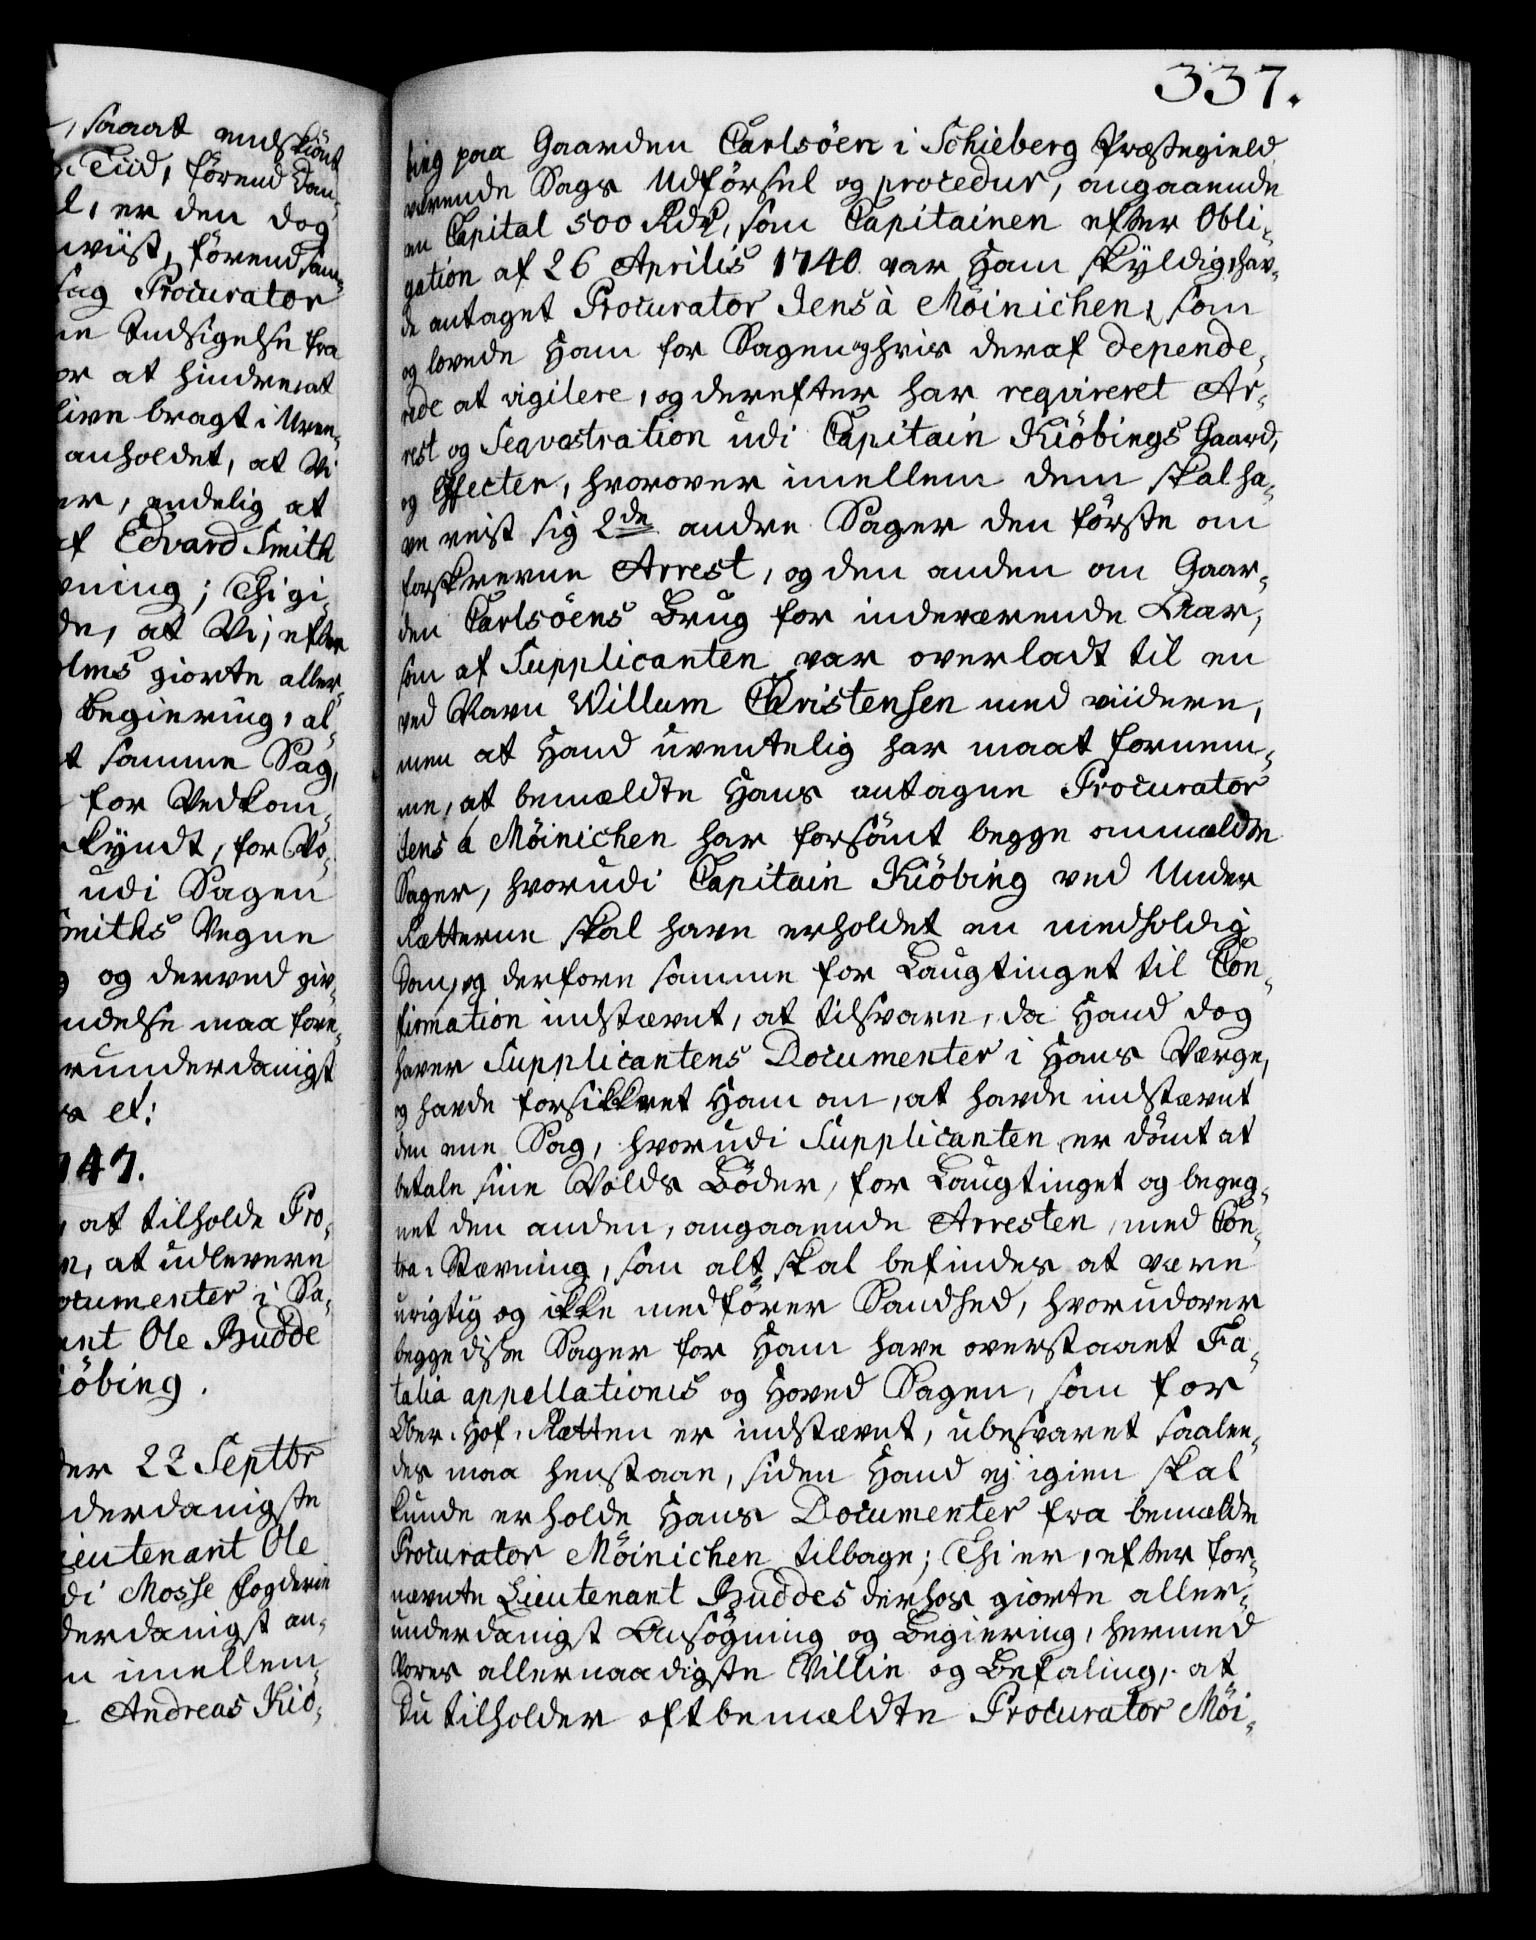 , saaat endskiönt
Tiid, förend Dom-
l, er den dog
wiist, förend sam-
sag Procurator
ne Indsigelse fra
or at hindre, at
live bragt i Uven-
anholdet, at Vi
er, endelig at
af Edvard Smith
vning; Thi gi-
de, at Vi, efter
olms giorte aller-
Begiering, al-
t samme Sag,
for Vedkom-
kyndt, for Vo-
udi Sagen
Smiths Vegne
og derved giv-
ndelse maa fore-
runderdanigst
et:
747.
, at tilholde Pro-
n, at udlevere
ocumenter i Sa-
ant Ole Budde
iöbing.
der 22 Septbr
derdanigste
ieutenant Ole
di Mosse fogderie
derdanigst an-
n imellem
Andreas Kiö-
337.
bing paa Gaarden Carlsöen i Schieberg Præstegield
værende Sags Udförsel og procedur, angaaende
en Capital 500 Rdr, som Capitainen efter Obli-
gation af 26 Aprilis 1740 var Ham skyldig, hav-
de antaget Procurator Jens à Möinichen, som
og lovede Ham for Sagen og hvis deraf depende-
rede at vigilere, og derefter har reqvireret Ar-
rest og Seqvæstration udi Capitain Kiöbings Gaard,
og Effecter, hvorover imellem dem skal ha-
ve reist sig 2de andre Sager den förste om
forskrevne Arrest, og den anden om Gaar-
den Carlsöens Brug for indeværende Aar,
som af Supplicanten var overladt til en
ved Navn Willum Christensen med viidere,
men at Hand uventelig har maat fornem-
me, at bemældte Hans antagne Procurator
Jens à Möinichen har forsömt begge ommældte
Sager, hvorudi Capitain Kiöbing ved Under
Rætterne skal have erholdet en medholdig
Dom, og derfore samme for Laugtinget til Con-
firmation indstævnt, at tilsvare, da Hand dog
haver Supplicantens Documenter i Hans Værge,
og havde forsikkret Ham om, at havde indstævnt
den ene Sag, hvorudi Supplicanten er dömt at
betale sine Volds Böder, for Laugtinget og begeg-
net den anden, angaaende Arresten, med Con-
tra-Stævning, som alt skal befindes at være
urigtig og ikke medförer Sandhed, hvorudover
begge disse Sager for Ham have overstaaet Fa-
talia appellationis og Hoved Sagen, som for
Ober-Hof-Rætten er indstævnt, ubesvaret saalee-
des maa henstaae, siden Hand ej igien skal
kunde erholde Hans Documenter fra bemældte
Procurator Möinichen tilbage; Thi er, efter for-
nævnte Lieutenant Buddes derhos giorte aller-
underdanigst Ansögning og Begiering, hermed
Vores allernaadigste Villie og Befaling, at
Du tilholder oftbemældte Procurator Möi-